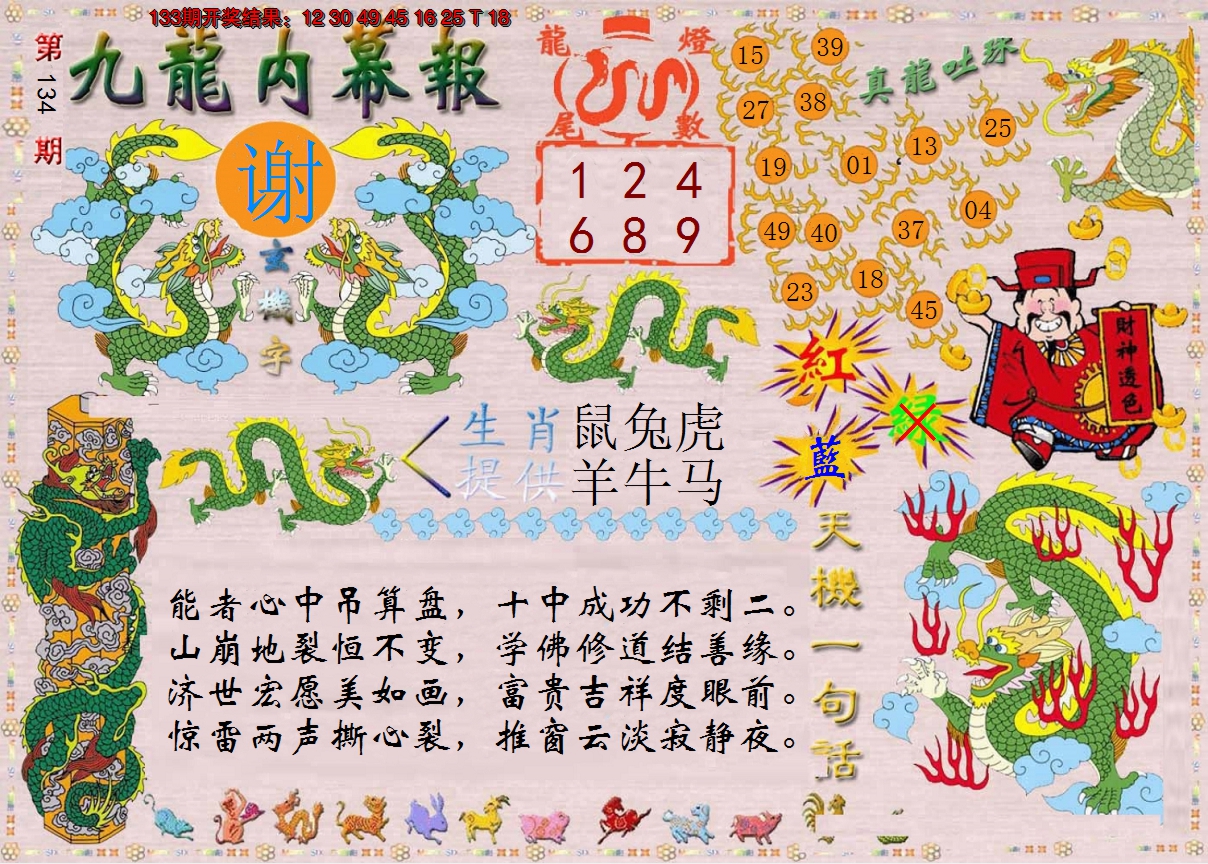 133期开奖结果：12 30 49 45 16 25 T 18
第134期
九龍内幕報
谢
玄機字
龍燈
尾數
1 2 4
6 8 9
真龍吐珠
15
39
27
38
19
01
13
25
49
40
37
04
23
18
45
財神透色
紅
绿
藍
生肖
提供
鼠兔虎
羊牛马
能者心中吊算盘，十中成功不剩二。
山崩地裂恒不变，学佛修道结善缘。
济世宏愿美如画，富贵吉祥度眼前。
惊雷两声撕心裂，推窗云淡寂静夜。
天機一句話